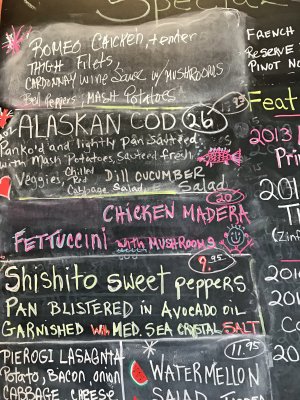 Special
ROMEO CHICKEN, tender
THIGH Filets
CARDONNAY Wine Sauce w/ MUSHROOMS
Bell Peppers, MASH POTATOES
ALASKAN COD 26
Panko'd and lightly Pan Sauteed
with Mash Potatoes, Sauteed fresh
Veggies, Chilled Red Cabbage Salad, Dill CUCUMBER Salad
20
CHICKEN MADERA
FETTUCCINI with MUSHROOMS
9.95
Shishito sweet peppers
PAN BLISTERED in AVOCADO OIL
GARNISHED with MED. SEA CRYSTAL SALT
PIEROGI LASAGNTA
Potato, BACON, onion
CABBAGE CHEESE
11.95
WATERMELON
SALAD
FRENCH
RESERVE
PINOT NO
Feat
2013
Pri
201
Ti
(Zinf
201
201
20